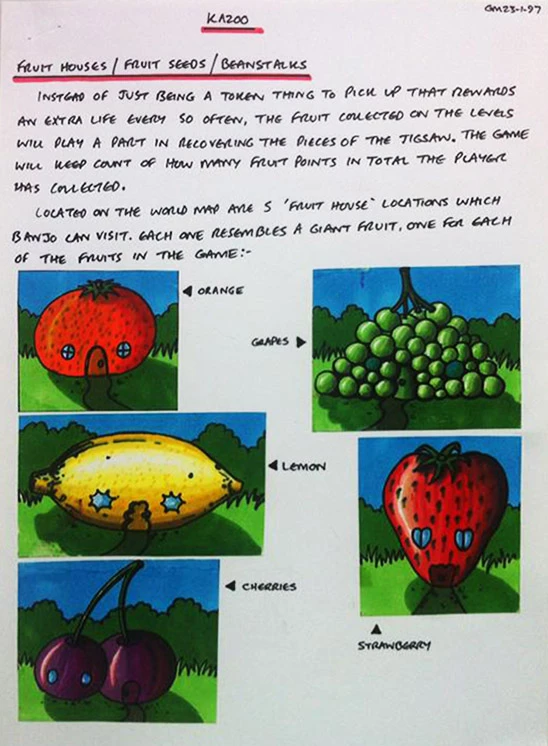 KAZOO
GM23-1-97
FRUIT HOUSES / FRUIT SEEDS / BEANSTALKS
INSTEAD OF JUST BEING A TOKEN THING TO PICK UP THAT REWARDS
AN EXTRA LIFE EVERY SO OFTEN, THE FRUIT COLLECTED ON THE LEVELS
WILL PLAY A PART IN RECOVERING THE PIECES OF THE JIGSAW. THE GAME
WILL KEEP COUNT OF HOW MANY FRUIT POINTS IN TOTAL THE PLAYER
HAS COLLECTED.
LOCATED ON THE WORLD MAP ARE 5 'FRUIT HOUSE' LOCATIONS WHICH
BANJO CAN VISIT. EACH ONE RESEMBLES A GIANT FRUIT, ONE FOR EACH
OF THE FRUITS IN THE GAME:-
ORANGE
GRAPES
LEMON
CHERRIES
STRAWBERRY